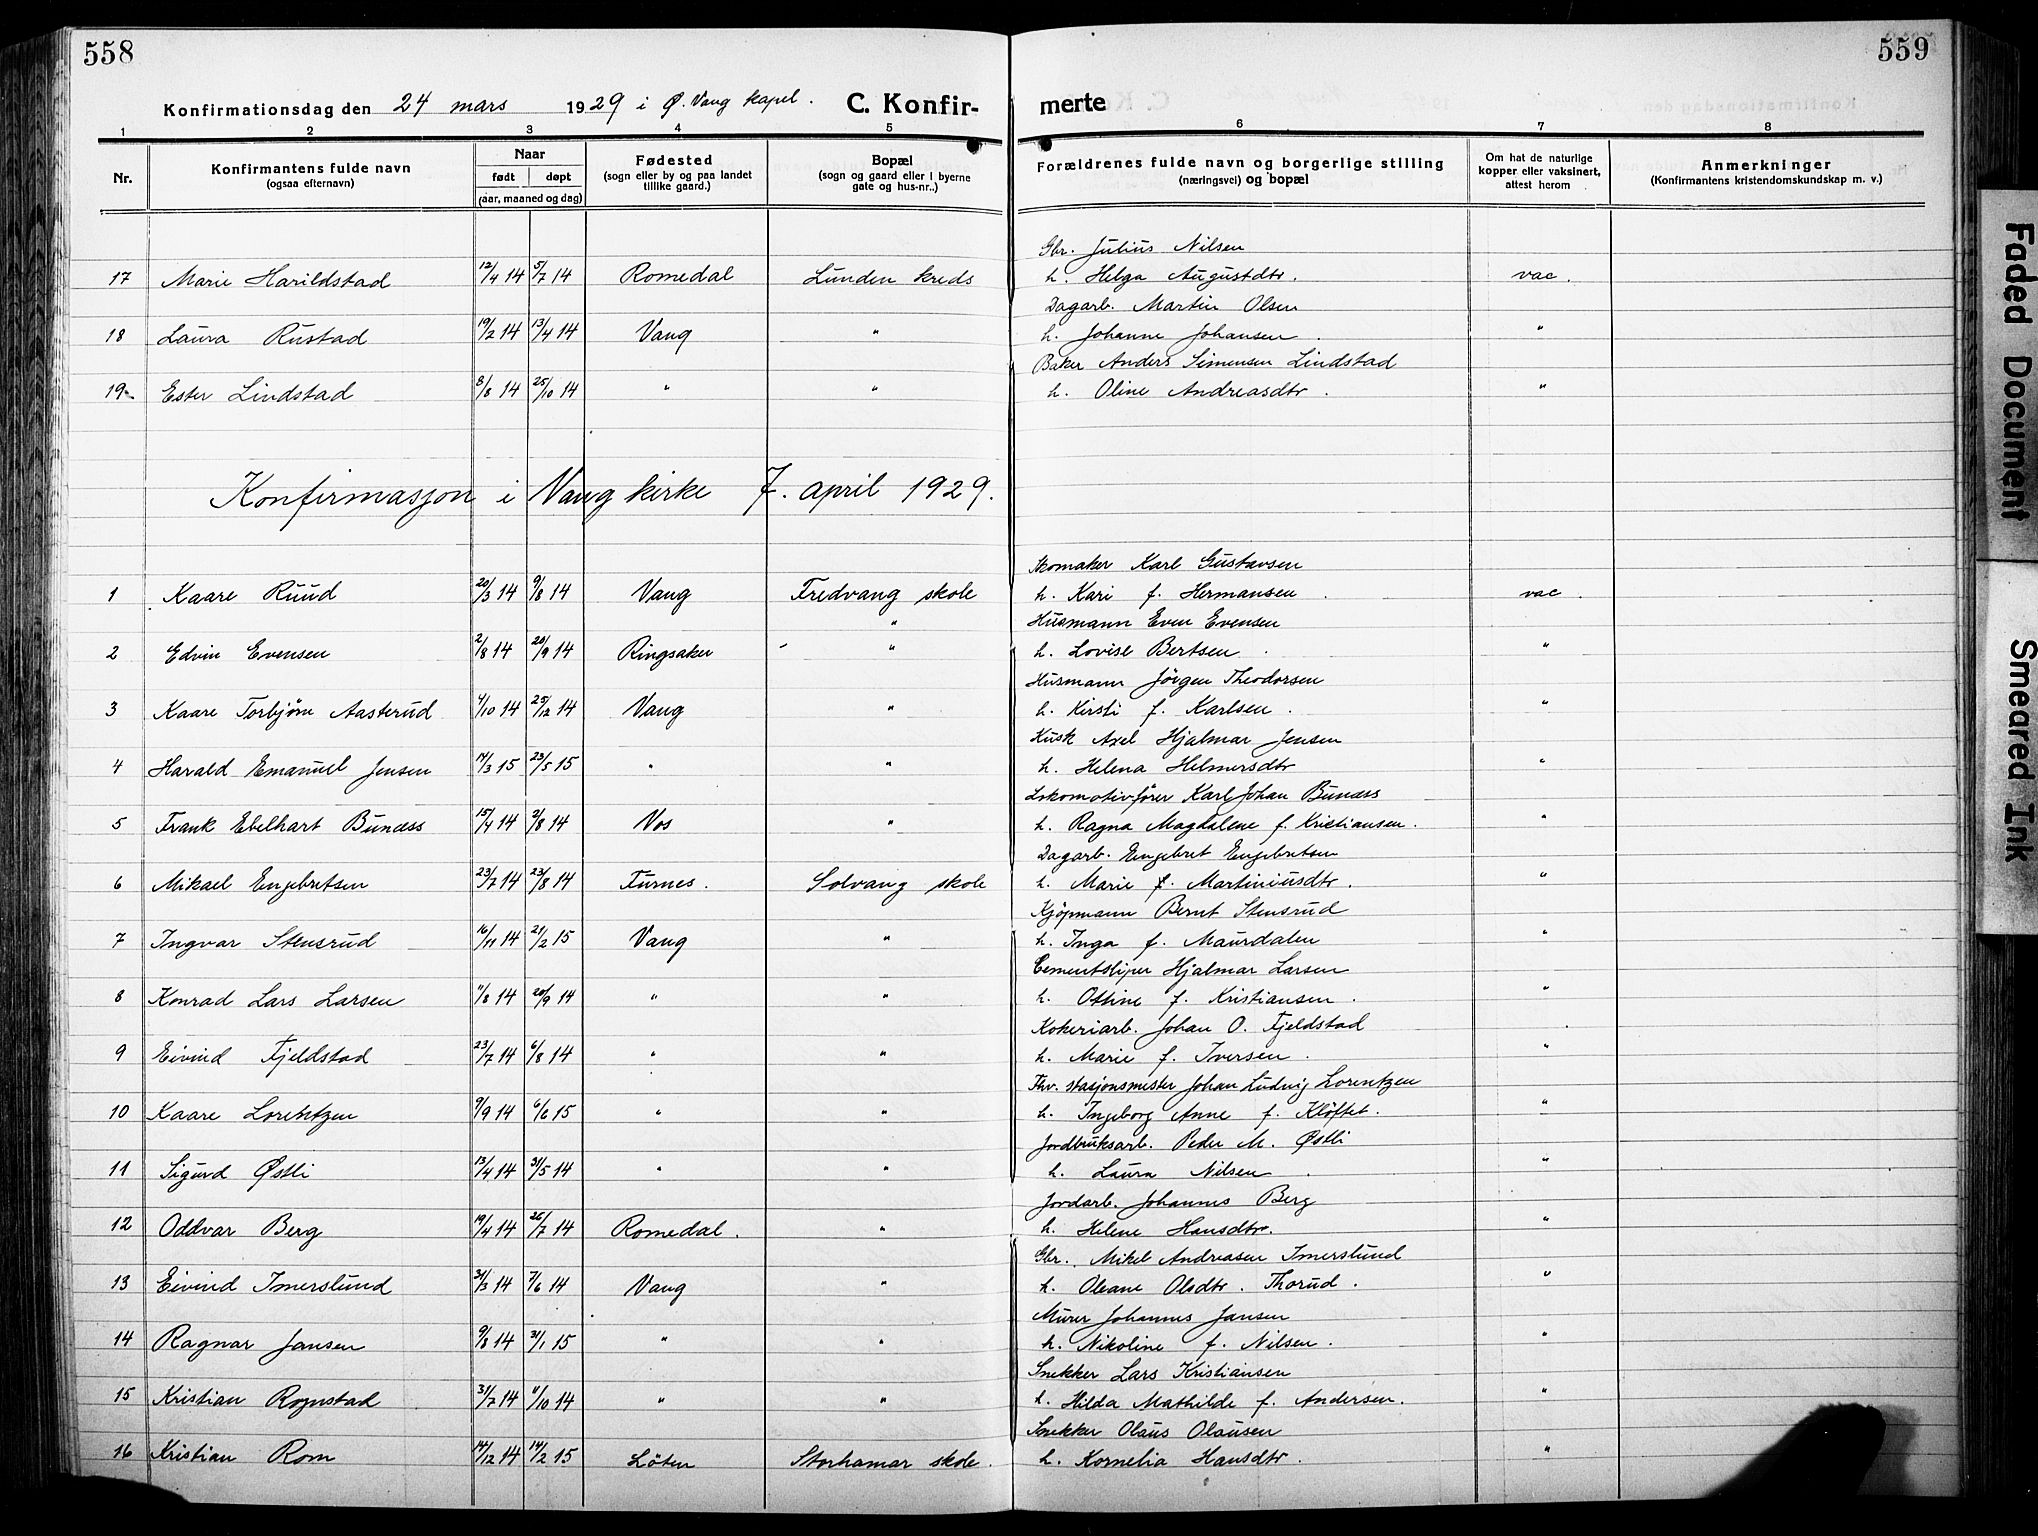 558
559
Konfirmationsdag den 24 mars 1929 i Ø. Vang kapel. C. Konfir- merte
1 2 3 4 5 6 7 8
Nr. Konfirmantens fulde navn (ogsaa efternavn) Naar født døpt (aar, maaned og dag) Fødested (sogn eller by og paa landet tillike gaard.) Bopæl (sogn og gaard eller i byerne gate og hus-nr..) Forældrenes fulde navn og borgerlige stilling (næringsvei) og bopæl Om hat de naturlige kopper eller vaksinert, attest herom Anmerkninger (Konfirmantens kristendomskundskap m. v.)
Gbr. Julius Nilsen
17 Marie Harildstad 12/4 14 5/7 14 Romedal Lunden kreds h. Helga Augustdtr. vac.
Dagarb. Martin Olsen
18 Laura Rustad 19/2 14 13/4 14 Vang " h. Johanne Johansen. "
Baker Anders Simensen Lindstad
19 Ester Lindstad 8/8 14 25/10 14 " " h. Oline Andreasdtr. "
Konfirmasjon i Vang kirke 7. april 1929.
Skomaker Karl Gustavsen
1 Kaare Ruud 20/3 14 9/8 14 Vang Fredvang skole h. Kari f. Hermansen. vac.
" Husmann Even Evensen
2 Edvin Evensen 2/8 14 20/9 14 Ringsaker " h. Lovise Bertsen. "
Husmann Jörgen Theodorsen
3 Kaare Torbjørn Aasterud 4/10 14 25/12 14 Vang " h. Kirsti f. Karlsen. "
Kusk Axel Hjalmar Jensen
4 Harald Emanuel Jensen 14/3 15 23/5 15 " " h. Helena Helmersdtr "
Lokomotivfører Karl Johan Bunæss
5 Frank Ebelhart Bunæss 15/4 14 2/8 14 Vos " h. Ragna Magdalene f. Kristiansen. "
Dagarb. Engebret Engebretsen
6 Mikael Engebretsen 23/7 14 23/8 14 Furnes. Solvang skole h. Marie f. Martiniusdtr. "
Kjøpmann Bernt Stensrud
7 Ingvar Stensrud 16/11 14 21/2 15 Vang " h. Inga f. Maurdalen "
Cementsliper Hjalmar Larsen
8 Konrad Lars Larsen 11/8 14 20/9 14 " " h. Ottine f. Kristiansen. "
Kokeriarb. Johan O. Fjeldstad
9 Eivind Fjeldstad 23/7 14 6/8 14 " " h. Marie f. Iversen. "
Fhv. stasjonsmester Johan Ludvig Lorentzen
10 Kaare Lorentzen 9/9 14 6/6 15 " " h. Ingeborg Anne f. Kløftet. "
Jordbruksarb. Peder M. Østli
11 Sigurd Østli 13/4 14 31/5 14 " " h. Laura Nilsen. "
Jordarb. Johannes Berg
12 Oddvar Berg 19/4 14 26/7 14 Romedal. " h. Helene Hansdtr. "
Gbr. Mikel Andreasen Imerslund
13 Eivind Imerslund 31/3 14 7/6 14 Vang " h. Oleane Olsdtr. Thorud. "
Murer Johannes Jansen
14 Ragnar Jansen 9/8 14 31/1 15 " " h. Nikoline f. Nilsen. "
Snekker Lars Kristiansen
15 Kristian Rognstad 31/7 14 11/10 14 " " h. Hilda Mathilde f. Andersen. "
Snekker Olaus Olausen
16 Kristian Rom 14/12 14 14/2 15 Löten Storhamar skole. h. Kornelia Hansdtr. "
Faded Document
Smeared Ink